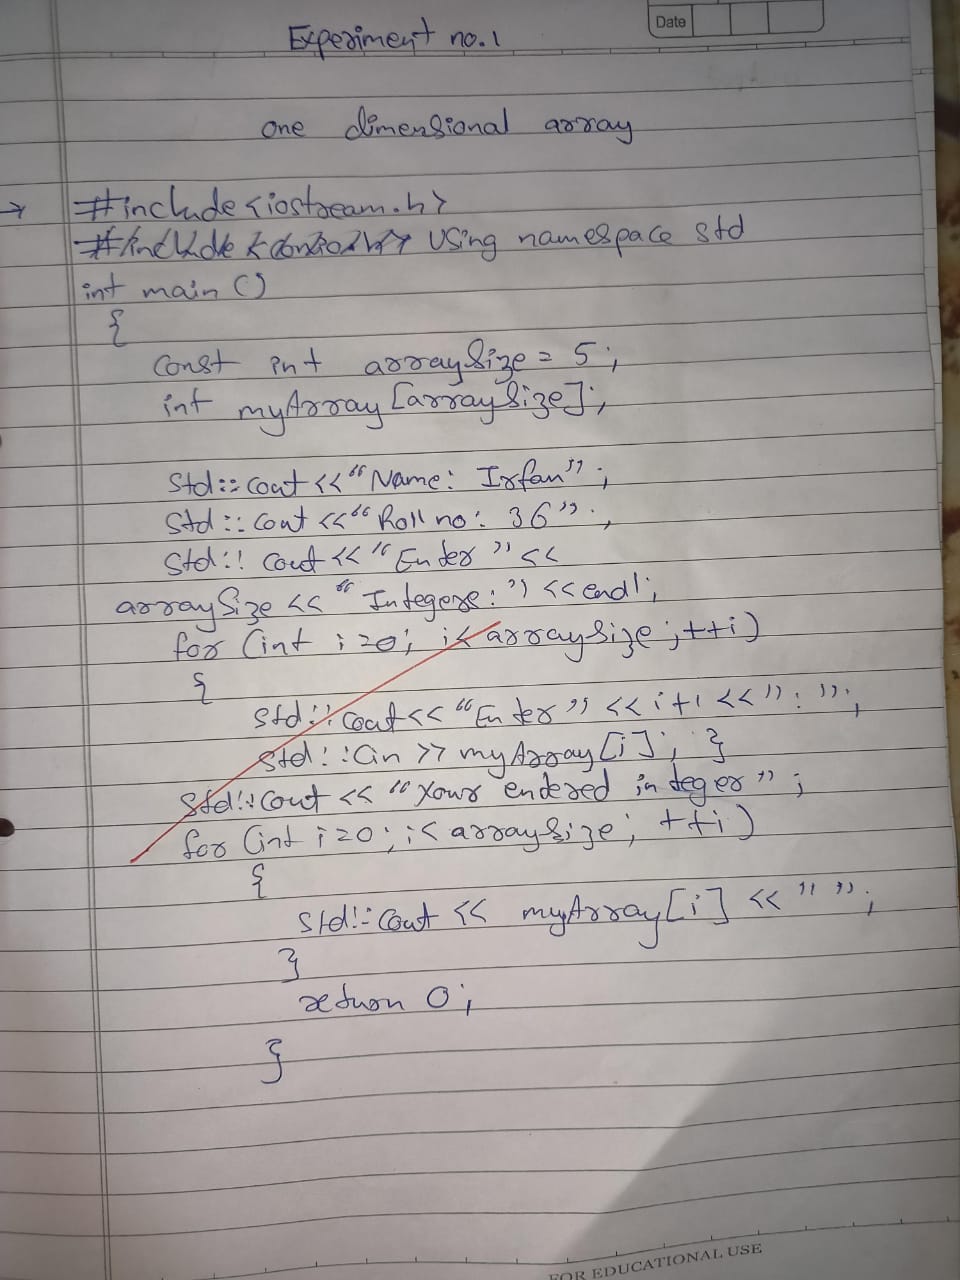 Date
Experiment no.1
one dimensional array
→ #include <iostream.h>
#include <conio.h> Using namespace std
int main ()
{
Const int arraySize = 5;
int myArray [arraySize];
Std::Cout <<"Name: Irfan";
Std::Cout <<"Roll no: 36";
Std::Cout <<"Enter" <<
arraySize << "Integers:") <<endl;
for (int i=0; i< arraySize; ++i)
{
Std::Cout << "Enter" << i+1 << ": ";
Std::Cin >> myArray[i]; }
Std::Cout << "Your entered integer";
for (int i=0; i< arraySize; ++i)
{
Std::Cout << myArray[i] << " ";
}
return 0;
}
FOR EDUCATIONAL USE